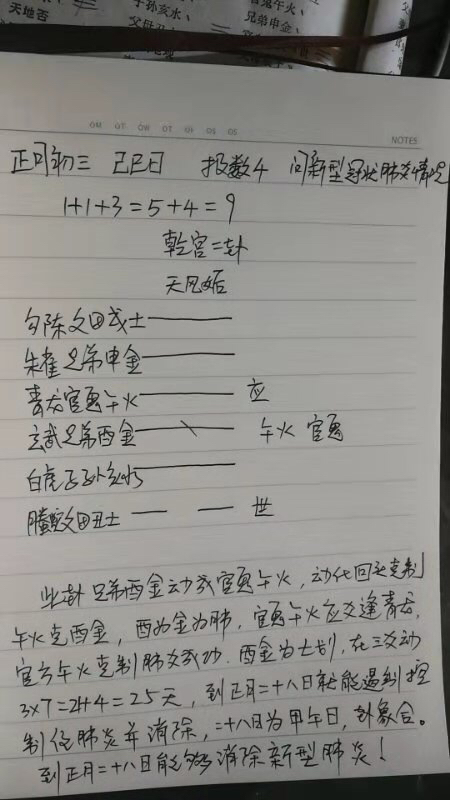 天地否
子孙亥水、
兄弟申金、
OM OT OW OT OF OS OS
NOTES
正月初三 己巳日 报数4 问新型冠状肺炎情况
1+1+3=5+4=9
乾宫二卦
天风姤
勾陈父母戌土
朱雀兄弟申金
青龙官鬼午火 应
玄武兄弟酉金 午火 官鬼
白虎子孙亥水
螣蛇父母丑土 世
此卦兄弟酉金动或官鬼午火,动化回头克制
午火克酉金,酉为金为肺,官鬼午火应爻逢青龙,
官方午火克制肺炎成功.酉金为七划,在三爻动
3x7=21+4=25天,到正月二十八日就能遏制控
制住肺炎并消除,二十八日为甲午日,卦象合。
到正月二十八日能够消除新型肺炎!